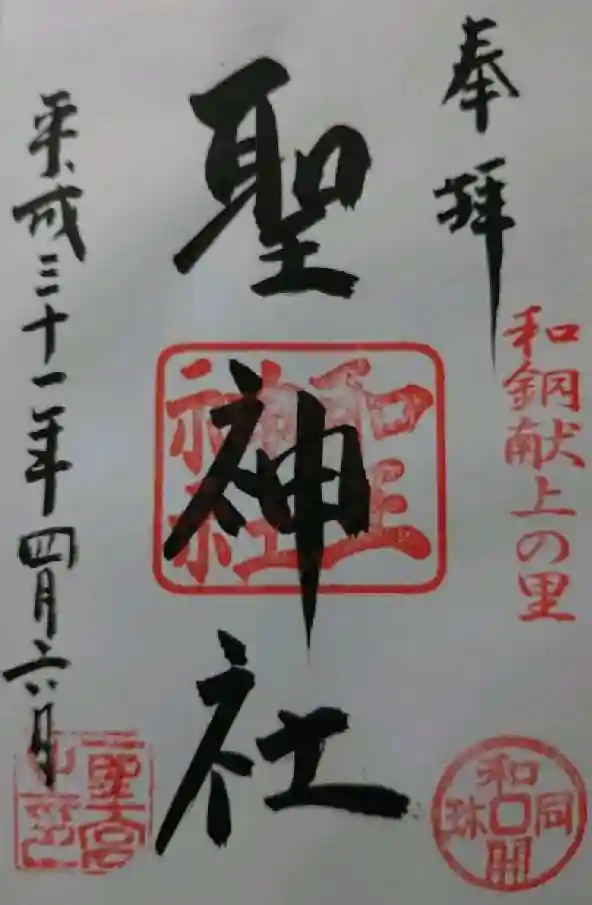 奉拝
和銅献上の里
聖神社
平成三十一年四月六日
和同開珎